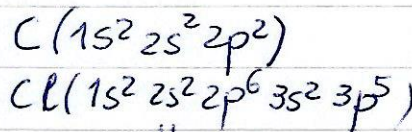 C(1s² 2s² 2p²)
Cl(1s² 2s² 2p⁶ 3s² 3p⁵)